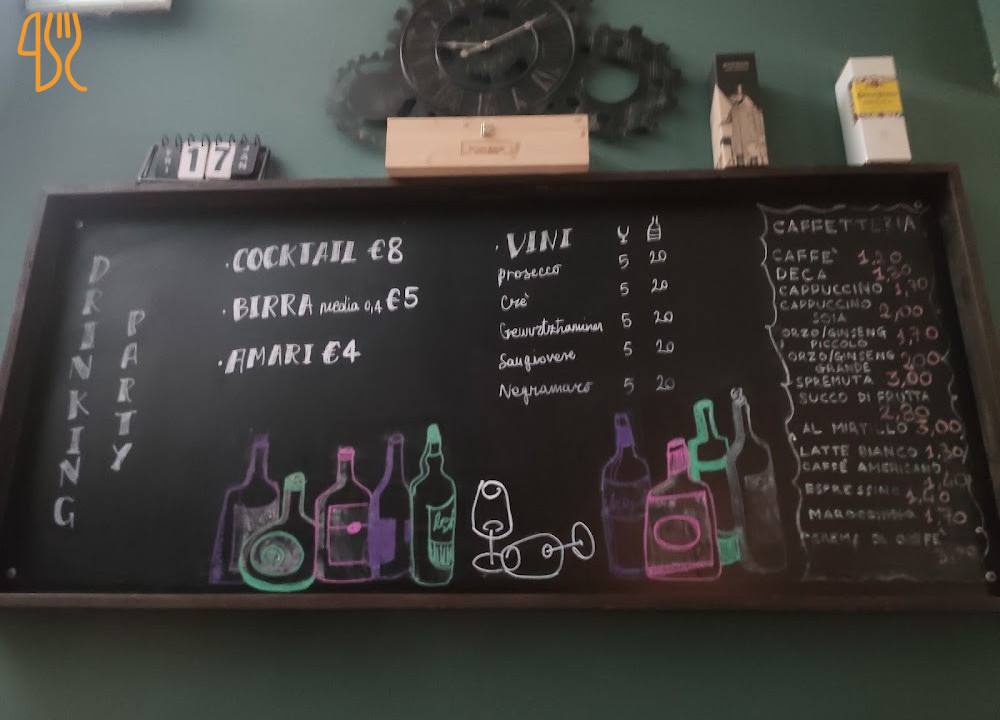 17
DRINKING
PARTY
COCKTAIL €8
BIRRA media 0,4 €5
AMARI €4
VINI
prosecco 5 20
Crè 5 20
Gewurtztraminer 5 20
Sangiovese 5 20
Negramaro 5 20
CAFFETTERIA
CAFFÈ 1,20
DECA
CAPPUCCINO 1,70
CAPPUCCINO
SOIA 2,00
ORZO/GINSENG
PICCOLO 1,70
ORZO/GINSENG
GRANDE 2,00
SPREMUTA 3,00
SUCCO DI FRUTTA
2,80
AL MIRTILLO 3,00
LATTE BIANCO 1,30
CAFFÈ AMERICANO
ESPRESSINO 1,40
MAROCCHINO 1,70
CREMA DI CAFFÈ